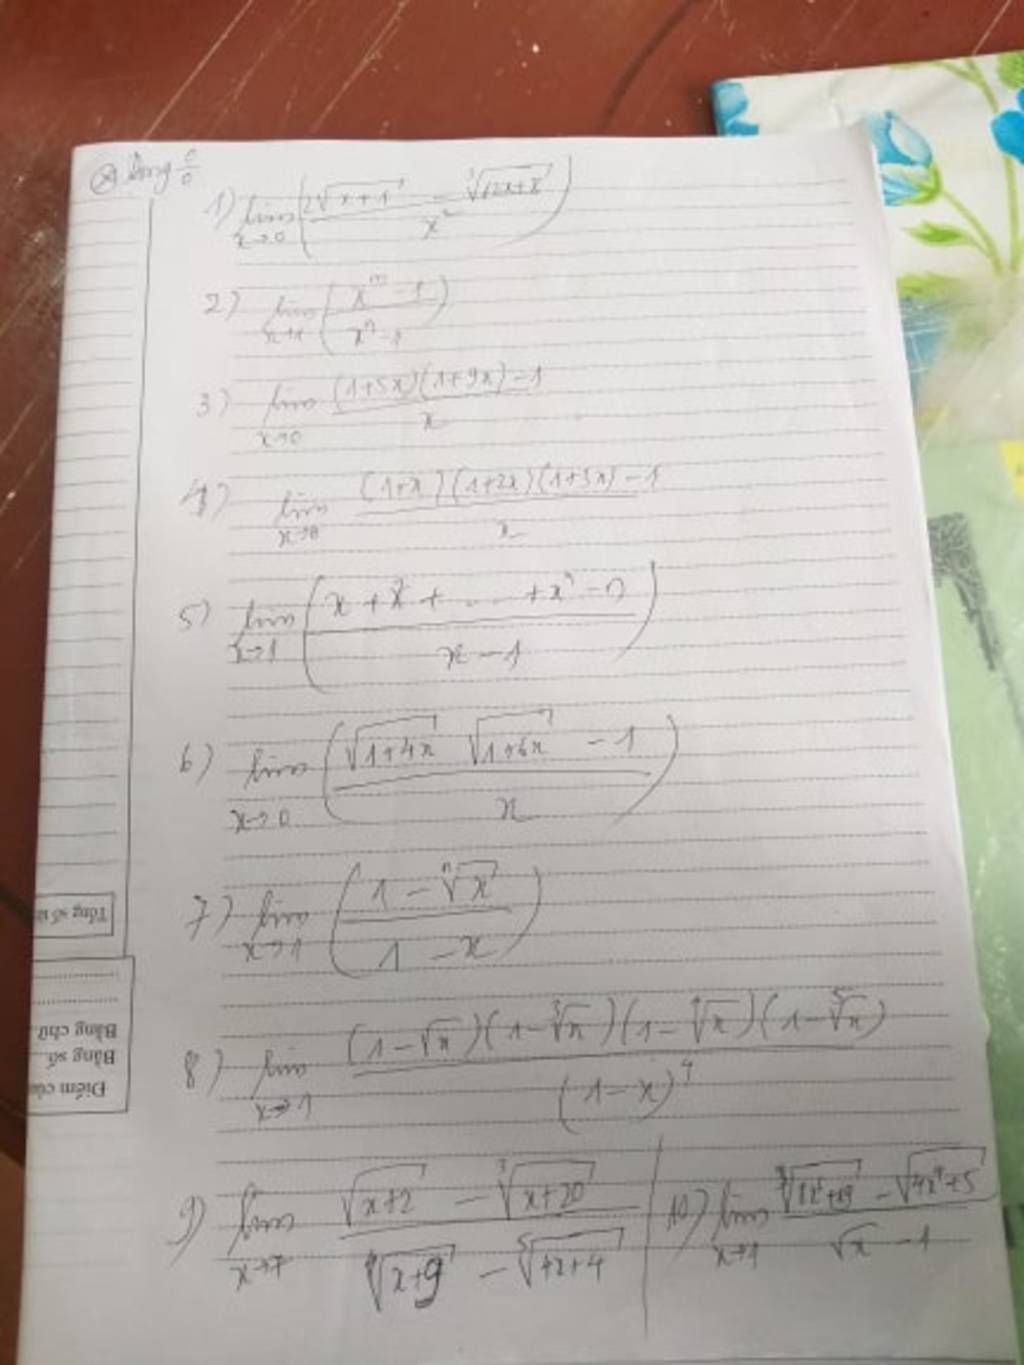 Dạng 0/0
1) lim x→0 (2√(x+1) − ∛(12x+8))/x²
2) lim x→1 ((x^m − 1)/(x^n − 1))
3) lim x→0 ((1+5x)(1+9x) − 1)/x
4) lim x→0 ((1+x)(1+2x)(1+3x) − 1)/x
5) lim x→1 ((x + x² + ... + x^n − n)/(x − 1))
6) lim x→0 ((√(1+4x) √(1+6x) − 1)/x)
7) lim x→1 ((1 − ⁿ√x)/(1 − x))
8) lim x→1 ((1−√x)(1−∛x)(1−∜x)(1−⁵√x))/(1−x)⁴
9) lim x→7 (√(x+2) − ∛(x+20))/(∜(x+9) −
10) lim x→1 − √(4x⁴+5))/(√x − 1)
Tổng số tờ
Bằng chữ
Bằng số
Điểm của